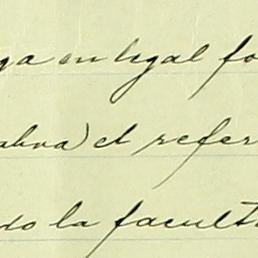 ga en legal fo
alva) el refer
do la facult